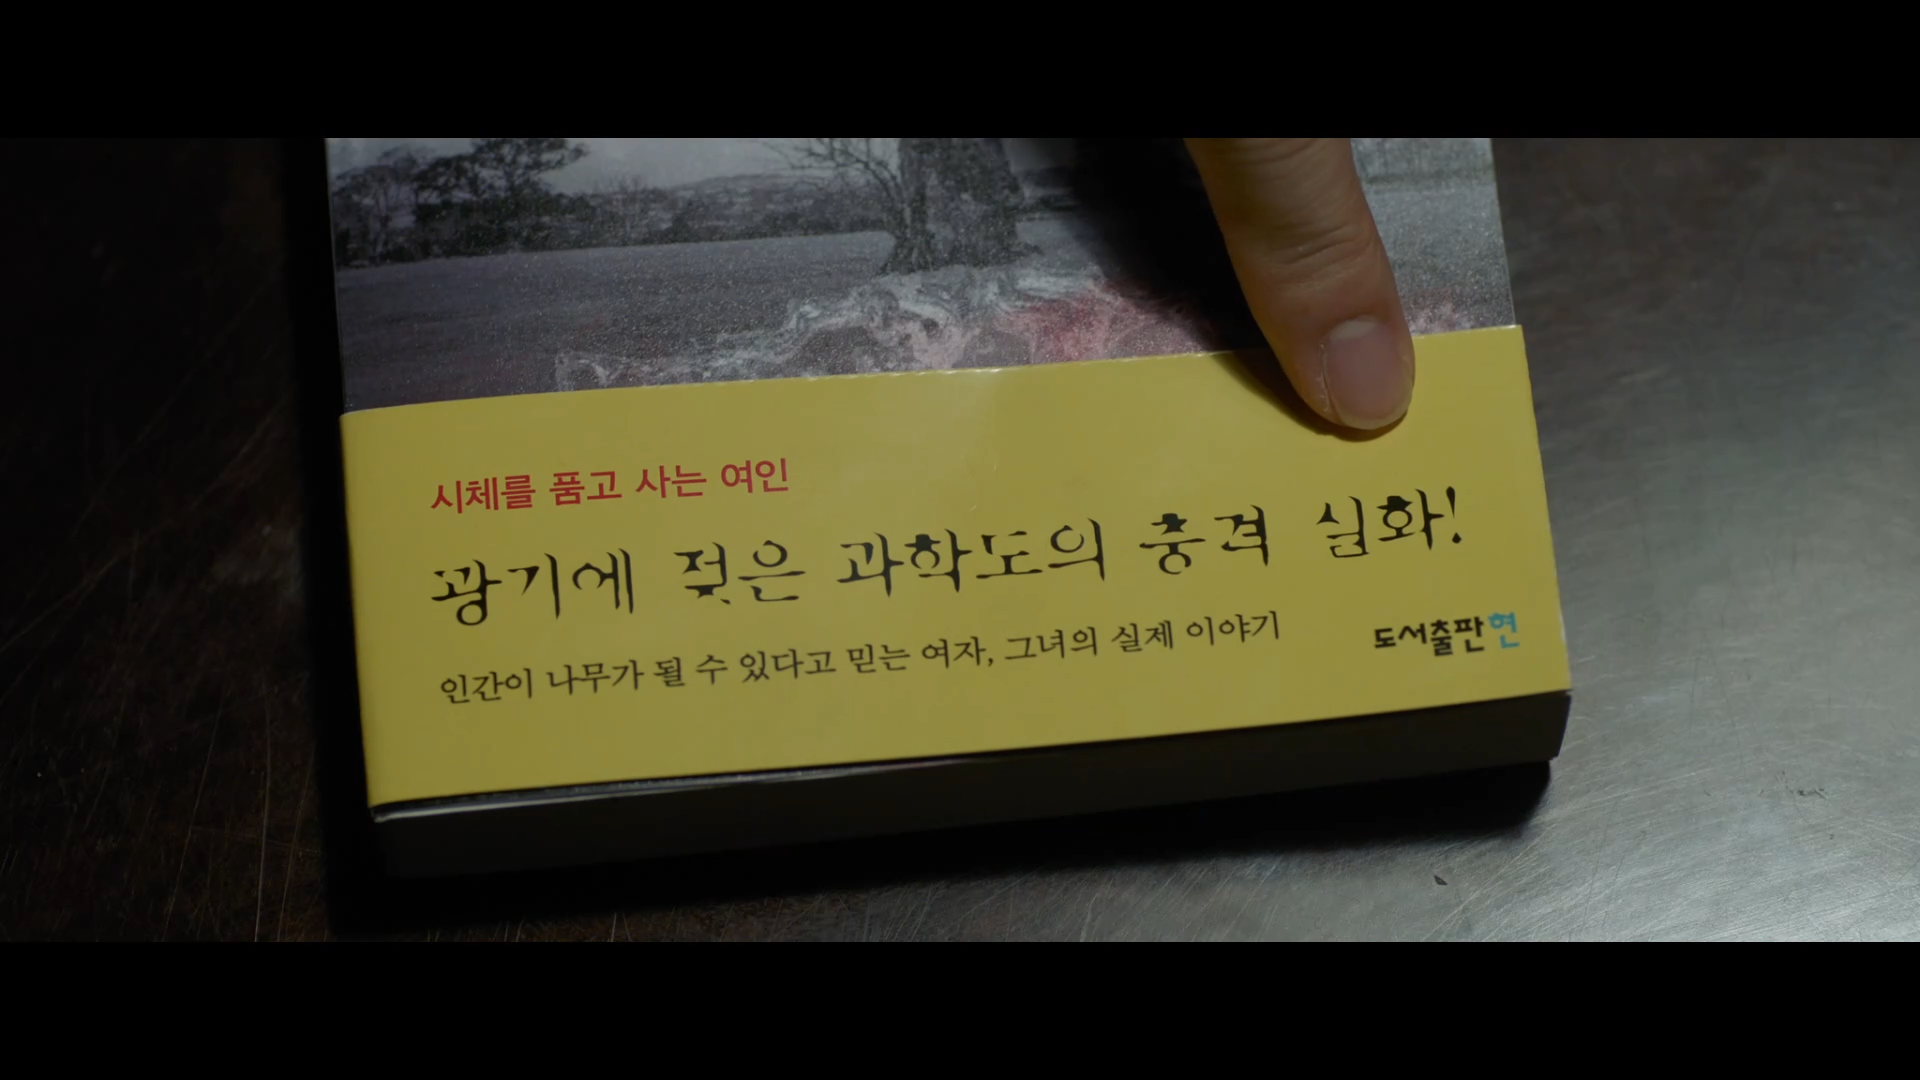 시체를 품고 사는 여인
광기에 젖은 과학도의 충격 실화!
인간이 나무가 될 수 있다고 믿는 여자, 그녀의 실제 이야기
도서출판현